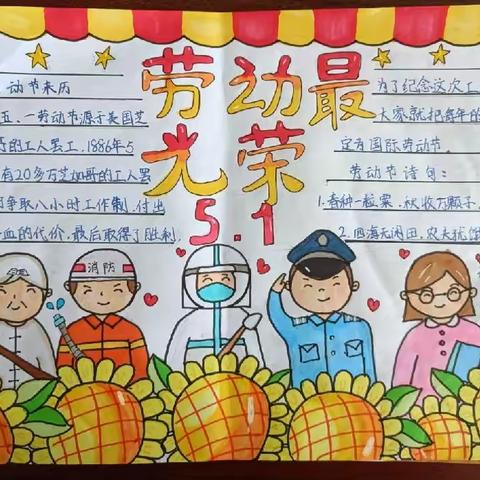 劳动最
光荣
5.1
动节来历
五一劳动节源于美国芝
的工人罢工.1886年5
有20多万芝加哥的工人罢
争取八小时工作制.付出
血的代价.最后取得了胜利.
为了纪念这次工
大家就把每年的
定为国际劳动节.
劳动节诗句:
1.春种一粒粟.秋收万颗子.
2.四海无闲田.农夫犹饿
消防